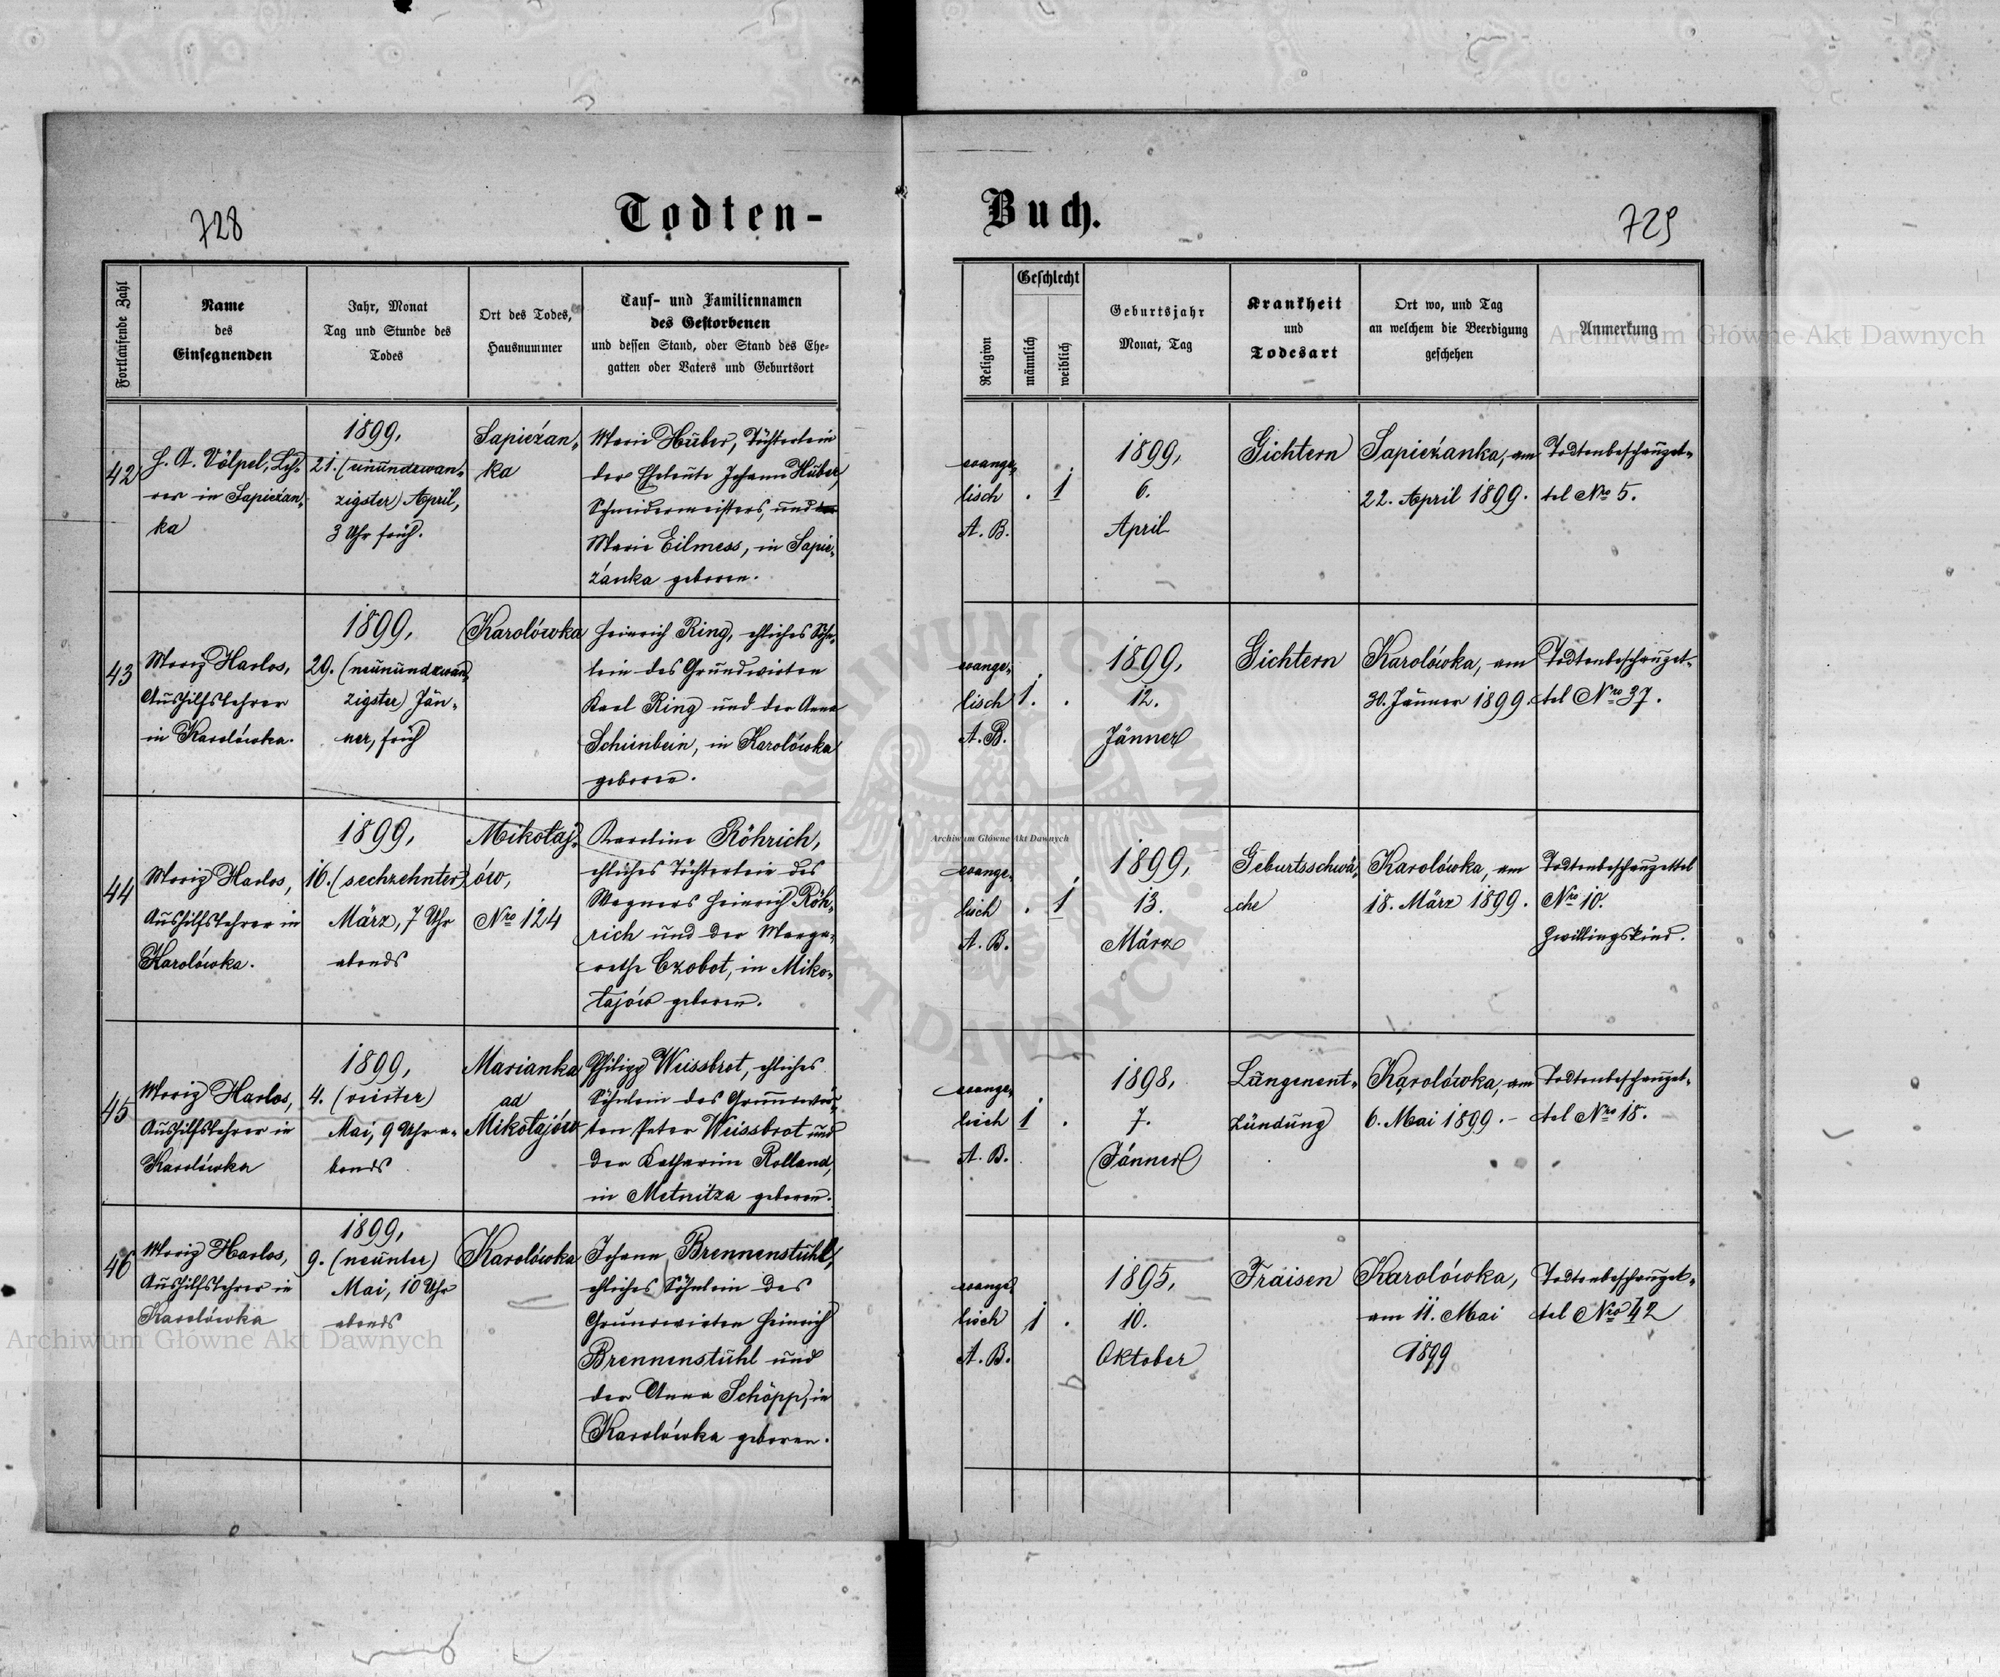 728
Todten-
Buch.
729
Fortlaufende Zahl
Name
des
Einsegnenden
Jahr, Monat
Tag und Stunde des
Todes
Ort des Todes,
Hausnummer
Tauf- und Familiennamen
des Gestorbenen
und dessen Stand, oder Stand des Ehe-
gatten oder Vaters und Geburtsort
Religion
Geschlecht
männlich
weiblich
Geburtsjahr
Monat, Tag
Krankheit
und
Todesart
Ort wo, und Tag
an welchem die Beerdigung
geschehen
Anmerkung
42
H. A. Völpel, Leh-
rer in Sapieżan-
ka
1899,
21. (einundzwan-
zigster) April,
3 Uhr früh.
Sapieżan-
ka
Marie Huber, Töchterlein
der Eheleute Johann Huber,
Schneidermeisters, und
Marie Eilmess, in Sapie-
żanka geboren.
evange-
lisch
A. B.
. 1
1899,
6.
April
Gichtern
Sapieżanka, am
22. April 1899.
Todtenbeschauzet-
tel Nro 5.
43
Moriz Harlos,
Aushilfslehrer
in Karolówka.
1899,
29. (neunundzwan-
zigster) Jän-
ner, früh
Karolówka
Heinrich Ring, ehliches Söhn-
lein des Grundwirten
Karl Ring und der Anna
Schienbein, in Karolówka
geboren.
evange-
lisch
A. B.
1. .
1899,
12.
Jänner
Gichtern
Karolówka, am
30. Jänner 1899.
Todtenbeschauzet-
tel Nro 37.
44
Moriz Harlos,
Aushilfslehrer in
Karolówka.
1899,
16. (sechzehnter)
März, 7 Uhr
abends
Mikołaj-
ów,
Nro 124
Karoline Röhrich,
ehliches Töchterlein des
Wagners Heinrich Röh-
rich und der Marga-
rethe Czobot, in Miko-
łajów geboren.
evange-
lisch
A. B.
. 1
1899,
13.
März
Geburtsschwä-
che
Karolówka, am
18. März 1899.
Todtenbeschauzettel
Nro 10.
Zwillingskind.
45
Moriz Harlos,
Aushilfslehrer in
Karolówka
1899,
4. (vierter)
Mai, 9 Uhr a-
bends
Marianka
ad
Mikołajów
Philipp Weissbrot, ehliches
Söhnlein des Grundwir-
ten Peter Weissbrot und
der Katharina Rolland,
in Metnitza geboren.
evange-
lisch
A. B.
1 .
1898,
7.
Jänner
Lungenent-
zündung
Karolówka, am
6. Mai 1899. -
Todtenbeschauzet-
tel Nro 18.
46
Moriz Harlos,
Aushilfslehrer in
Karolówka
1899,
9. (neunter)
Mai, 10 Uhr
abends
Karolówka
Johann Brennenstuhl,
ehliches Söhnlein des
Grundwirten Heinrich
Brennenstuhl und
der Anna Schöpp, in
Karolówka geboren.
evange-
lisch
A. B.
1 .
1895,
10.
Oktober
Fraisen
Karolówka,
am 11. Mai
1899
Todtenbeschauzet-
tel Nro 42
Archiwum Główne Akt Dawnych
Archiwum Główne Akt Dawnych
Archiwum Główne Akt Dawnych
ARCHIWUM GŁÓWNE AKT DAWNYCH